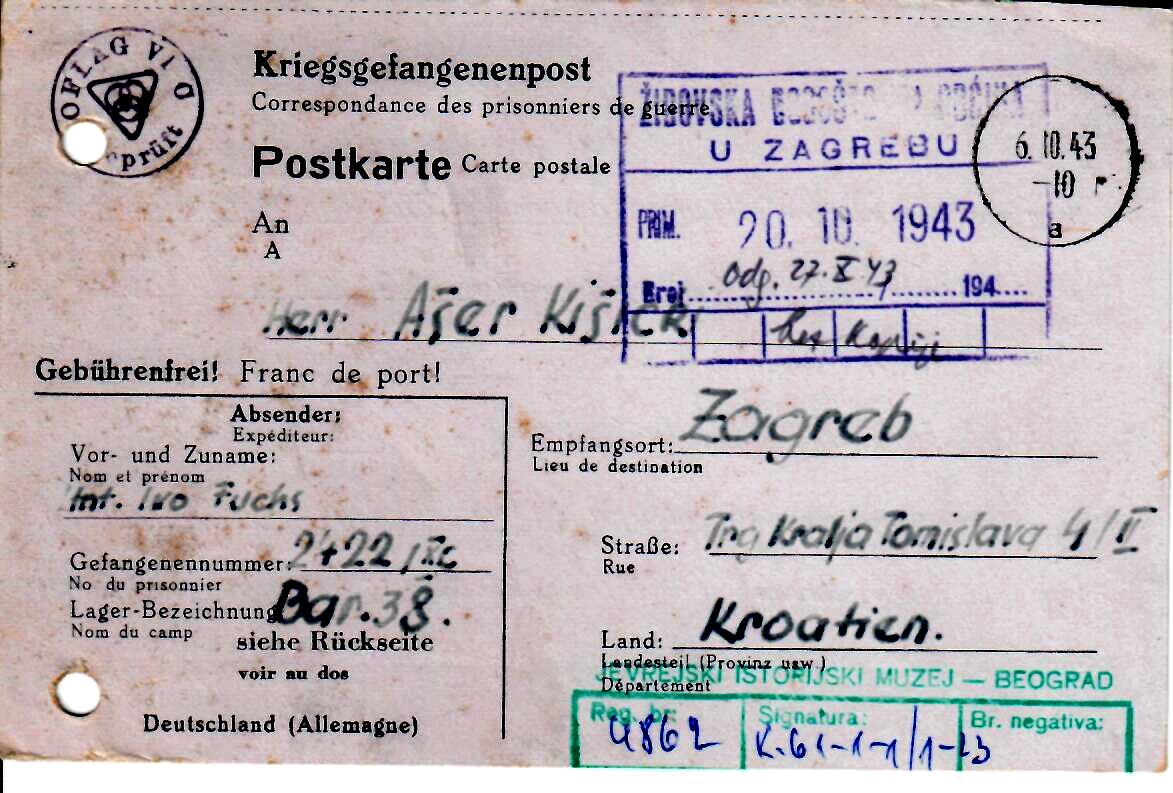 OFLAG VI C
geprüft
Kriegsgefangenenpost
Correspondance des prisonniers de guerre
Postkarte Carte postale
ŽIDOVSKA BOGOŠTOVNA OPĆINA
U ZAGREBU
6.10.43
-10
a
PRIM. 20. 10. 1943
Broj odg. 27. X 43 194
An
A
Herr Ašer Kišicki
Gebührenfrei! Franc de port!
Absender:
Expéditeur:
Vor- und Zuname:
Nom et prénom
Ivo Fuchs
Gefangenennummer: 2422/
No du prisonnier
Lager-Bezeichnung Bar. 38.
Nom du camp
siehe Rückseite
voir au dos
Deutschland (Allemagne)
Empfangsort: Zagreb
Lieu de destination
Straße: Trg Kralja Tomislava 4/II
Rue
Land: Kroatien.
Landesteil (Provinz usw.)
Département
JEVREJSKI ISTORIJSKI MUZEJ — BEOGRAD
Reg. br: 4862
Signatura: K.61-1-1/1-23
Br. negativa: